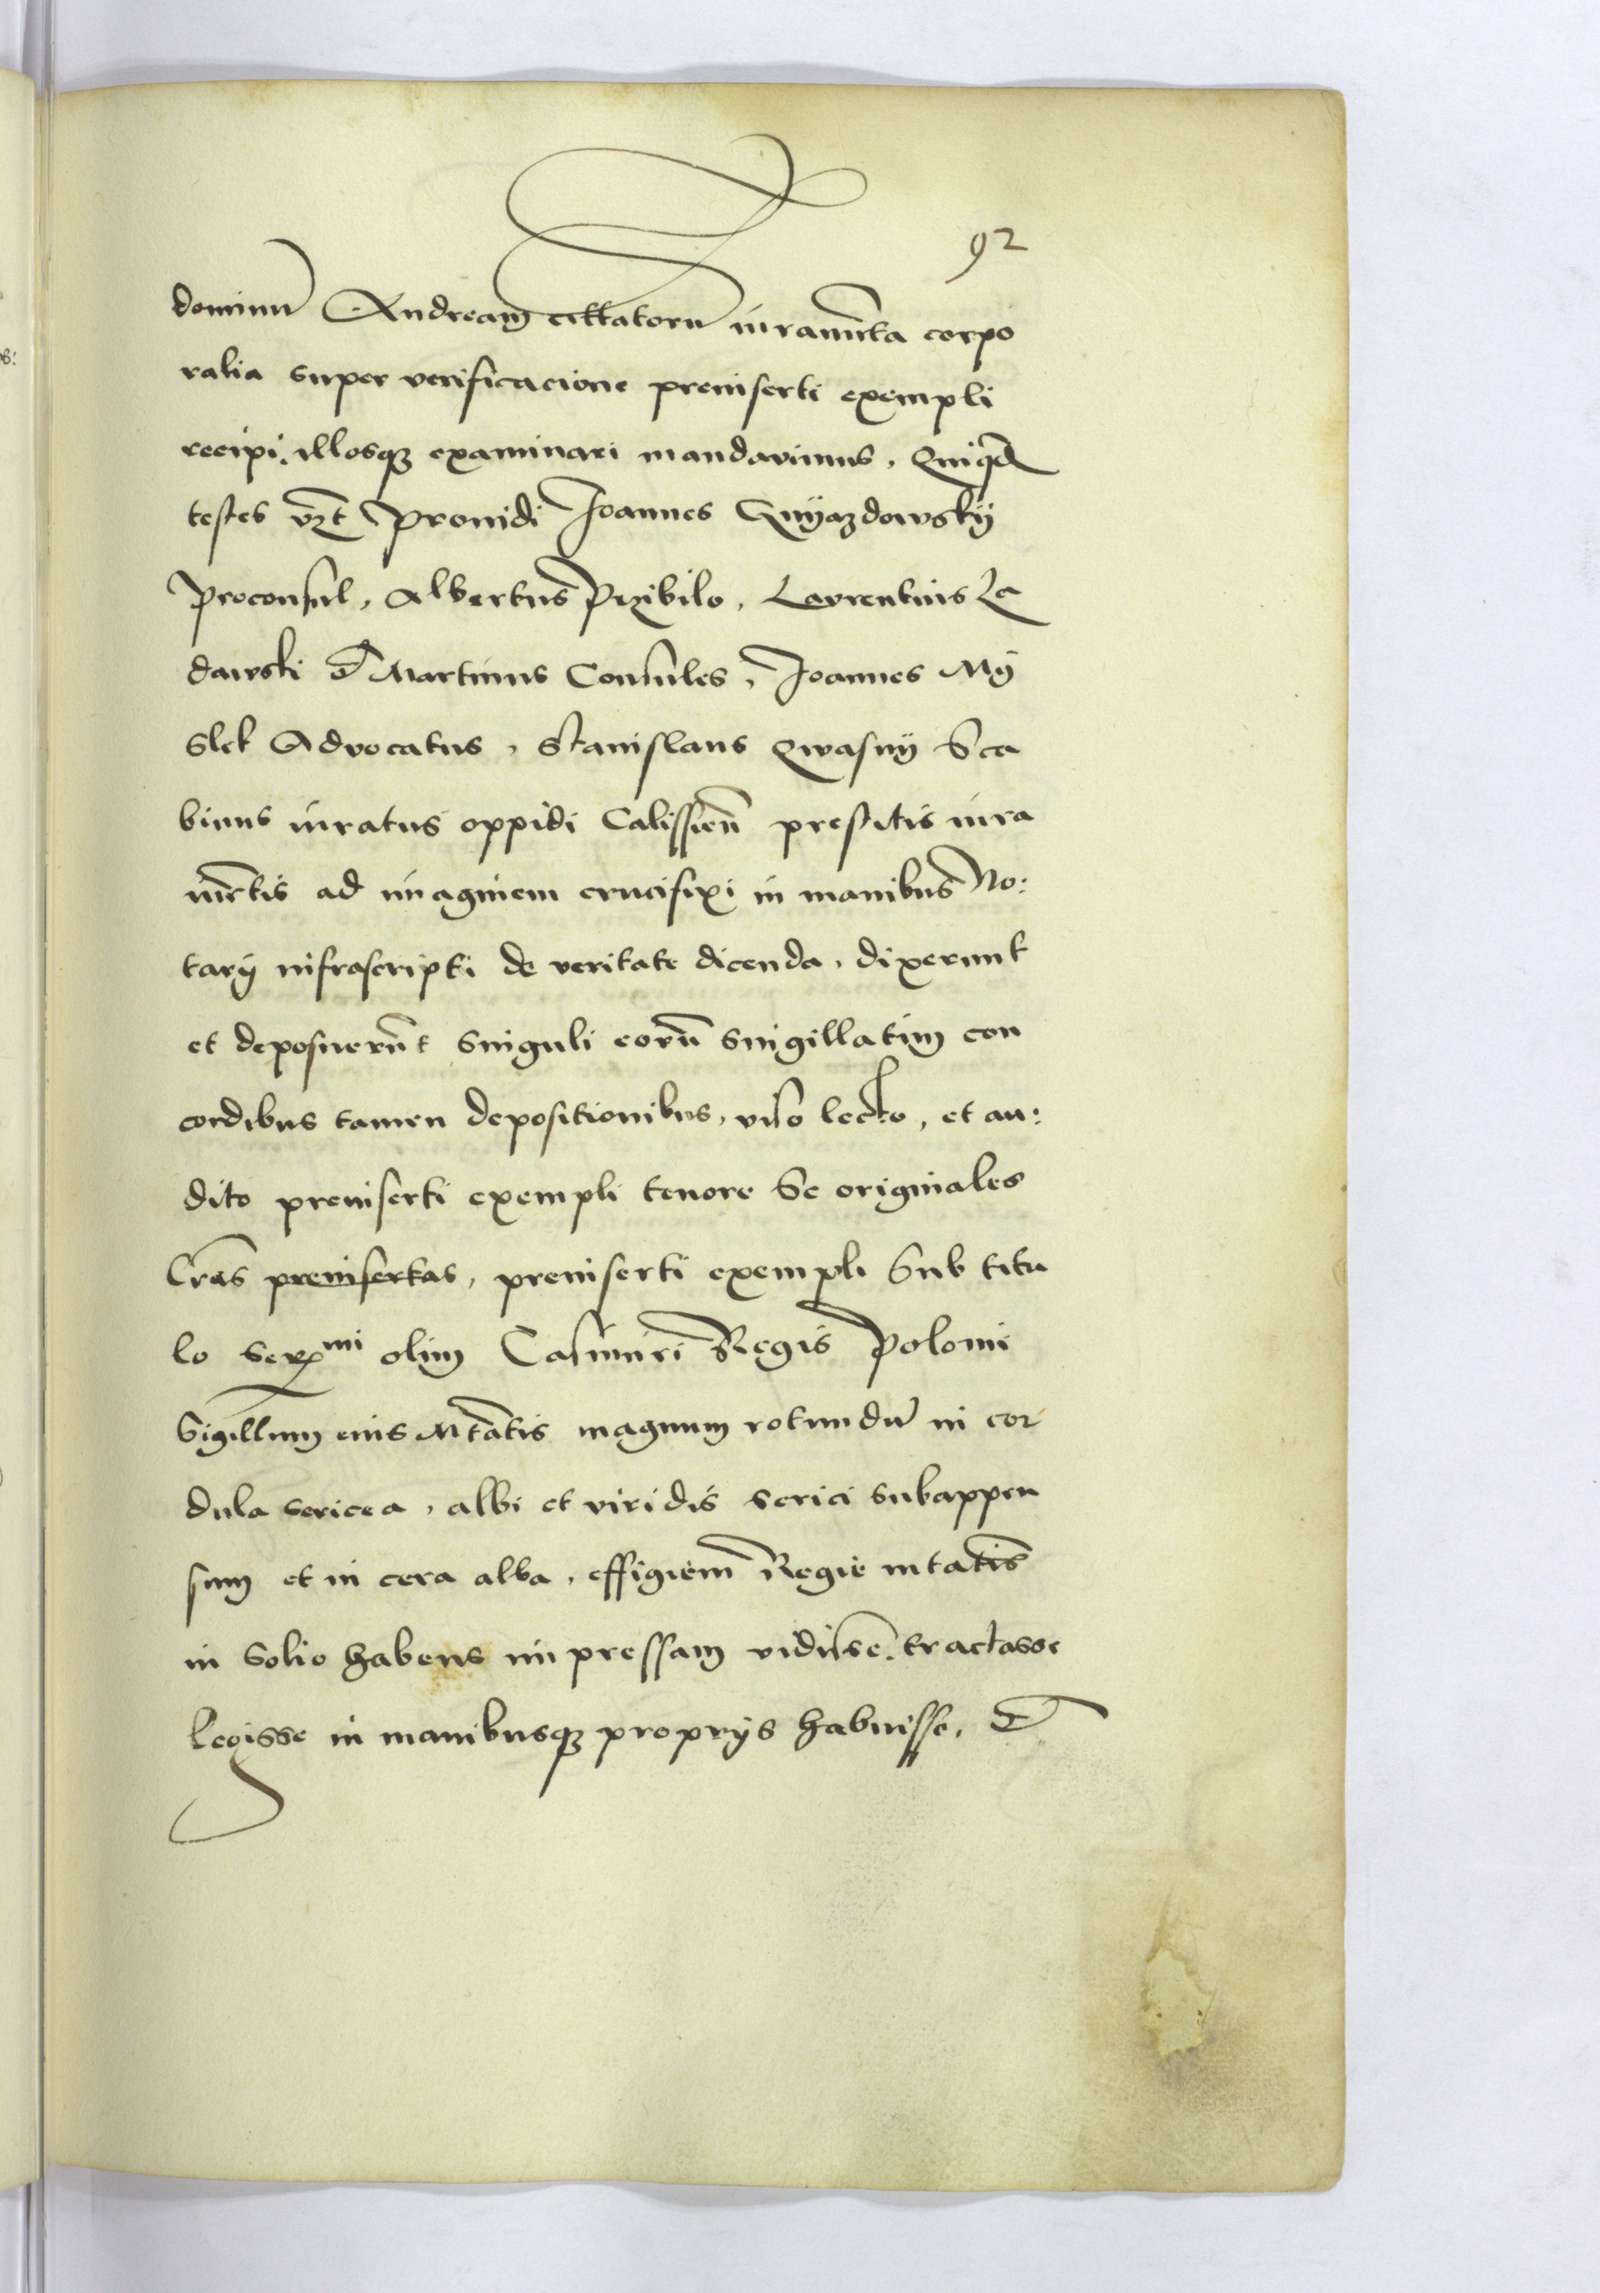 92
dominu᷉ Andream cittatoru᷉ iuram̃ta corpo
ralia super verificacione preinserti exempli
recipi. illosqȝ examinari mandavimus, Quiq̃d
testes vȝt Providi Joannes Gnÿazdowskÿ
Proconsul, Albertus Przibilo, Laurentius La
dawski et Martinus Consules, Joannes Mÿ
slek Advocatus, Stanislaus Qwasnÿ Sca
binus iuratus oppidi Calissien̄ prestitis iura
mētis ad imaginem crucifixi in manibus No:
tarÿ infrascripti de veritate dicenda, dixerunt
et deposuerūt singuli eorū singillatim con
cordibus tamen depositionibus, viso lecto, et au:
dito preinserti exempli tenore Se originales
Lr̃as preinsertas, preinserti exempli Sub titu
lo Serᵐⁱ olim Casimiri Regis Poloni
Sigillum eius Mtātis magnum rotundū in cor
dula sericea, albi et viridis serici subappen
sum et in cera alba, effigiem Regie mtātis
in Solio habens impressam vidisse. tractasse
legisse in manibusqȝ proprÿs habuisse, et